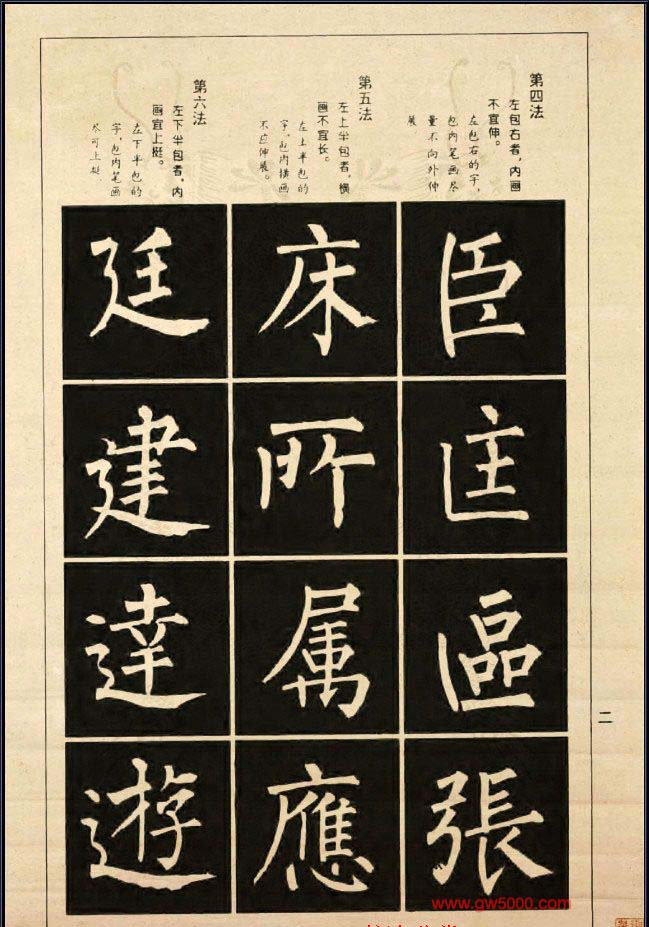 第四法
左包右者，内画
不宜伸。
左包右的字，
包内笔画尽
量不向外伸
展
臣
匡
區
張
第五法
左上半包者，横
画不宜长。
左上半包的
字，包内横画
不应伸展。
床
所
属
應
第六法
左下半包者，内
画宜上挺。
左下半包的
字，包内笔画
尽可上挺
廷
建
達
遊
二
www.gw5000.com